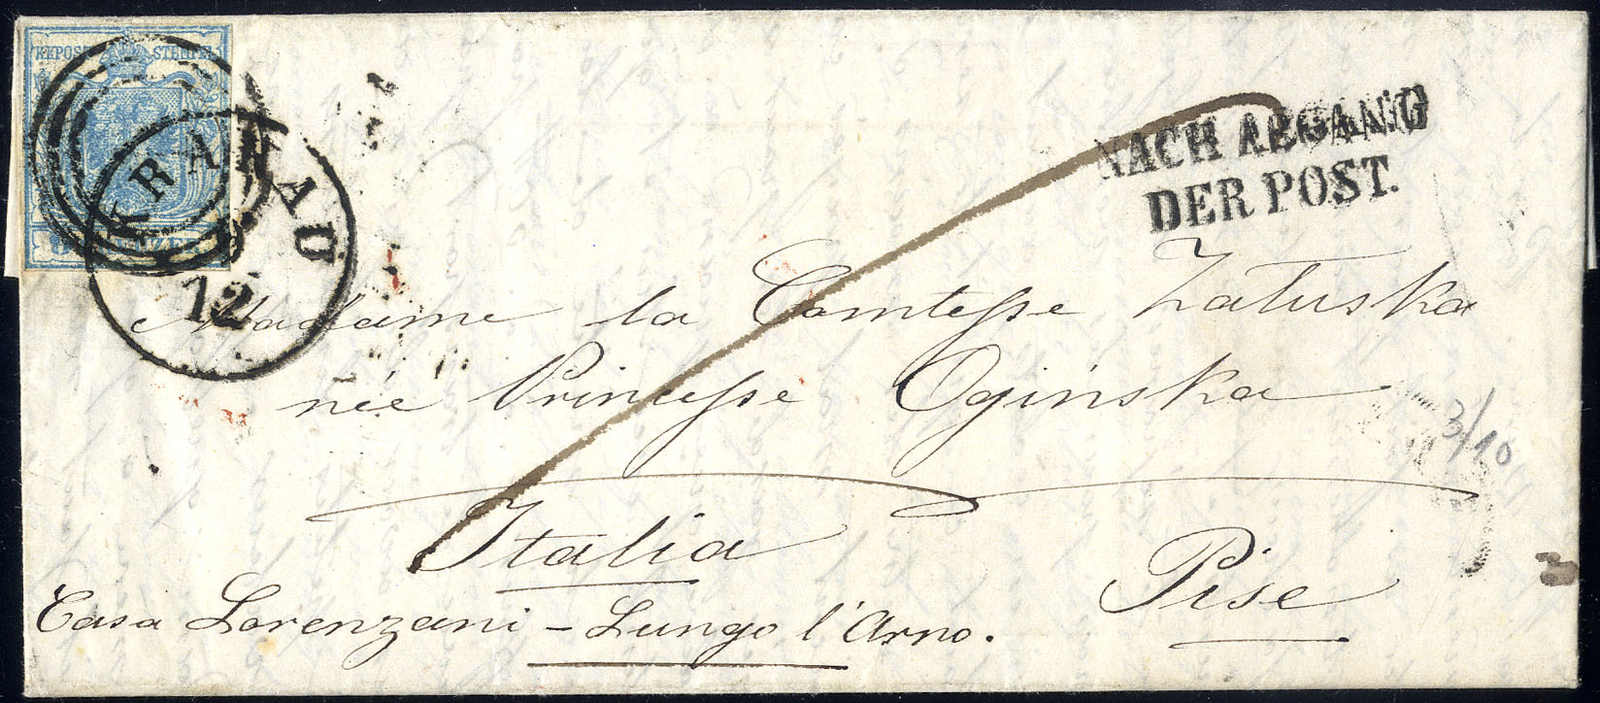 STEMPEL
KRAKAU
12
NACH ABGANG
DER POST.
Madame la Comtesse Załuska
née Princesse Ogińska
Italia
Pise
Casa Lorenzani - Lungo l'Arno.
3/10